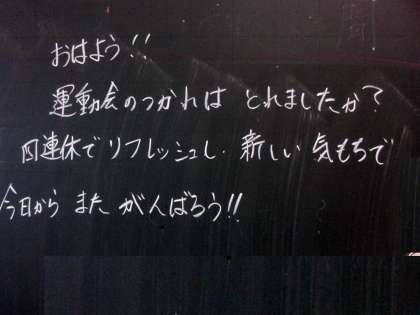 おはよう!!
運動会のつかれは とれましたか?
四連休でリフレッシュし、新しい 気もちで
今日から また がんばろう!!